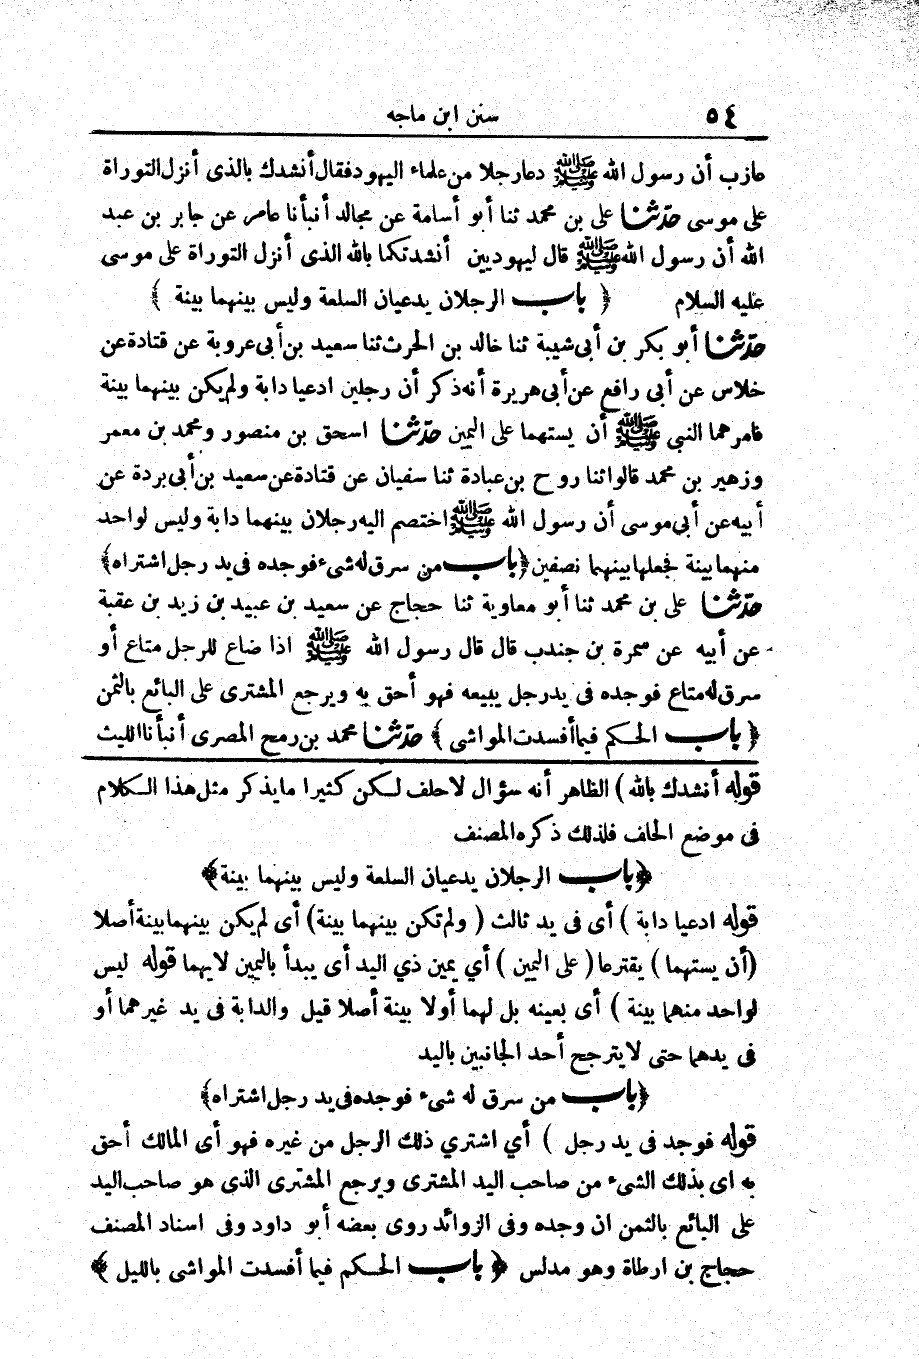 ٥٤
سنن ابن ماجه
عازب أن رسول الله ﷺ دعا رجلا من علماء اليهود فقال أنشدك بالذى أنزل التوراة
على موسى حدّثنا على بن محمد ثنا أبو أسامة عن مجالد أنبأنا عامر عن جابر بن عبد
الله أن رسول الله ﷺ قال ليهوديين أنشدتكما بالله الذى أنزل التوراة على موسى
عليه السلام ﴿ باب الرجلان يدعيان السلعة وليس بينهما بينة ﴾
حدّثنا أبو بكر بن أبى شيبة ثنا خالد بن الحرث ثنا سعيد بن أبى عروبة عن قتادة عن
خلاس عن أبى رافع عن أبى هريرة أنه ذكر أن رجلين ادعيا دابة ولم يكن بينهما بينة
فامرهما النبي ﷺ أن يستهما على اليمين حدّثنا اسحق بن منصور ومحمد بن معمر
وزهير بن محمد قالوا ثنا روح بن عبادة ثنا سفيان عن قتادة عن سعيد بن أبى بردة عن
أبيه عن أبى موسى أن رسول الله ﷺ اختصم اليه رجلان بينهما دابة وليس لواحد
منهما بينة فجعلها بينهما نصفين ﴿ باب من سرق له شىء فوجده فى يد رجل اشتراه ﴾
حدّثنا على بن محمد ثنا أبو معاوية ثنا حجاج عن سعيد بن عبيد بن زيد بن عقبة
عن أبيه عن سمرة بن جندب قال قال رسول الله ﷺ اذا ضاع للرجل متاع أو
سرق له متاع فوجده فى يد رجل يبيعه فهو أحق به ويرجع المشترى على البائع بالثمن
﴿ باب الحكم فيما أفسدت المواشى ﴾ حدّثنا محمد بن رمح المصرى أنبأنا الليث
قوله أنشدك بالله ) الظاهر أنه سؤال لا حلف لكن كثيرا ما يذكر مثل هذا الكلام
فى موضع الحلف فلذلك ذكره المصنف
﴿ باب الرجلان يدعيان السلعة وليس بينهما بينة ﴾
قوله ادعيا دابة ) أى فى يد ثالث ( ولم تكن بينهما بينة) أى لم يكن بينهما بينة أصلا
(أن يستهما ) يقترعا ( على اليمين ) أي يمين ذي اليد أى يبدأ باليمين لايهما قوله ليس
لواحد منهما بينة ) أى بعينه بل لهما أولا بينة أصلا قيل والدابة فى يد غيرهما أو
فى يدهما حتى لا يترجح أحد الجانبين باليد
﴿ باب من سرق له شىء فوجده فى يد رجل اشتراه ﴾
قوله فوجد فى يد رجل ) أي اشتري ذلك الرجل من غيره فهو أى المالك أحق
به اى بذلك الشىء من صاحب اليد المشترى ويرجع المشترى الذى هو صاحب اليد
على البائع بالثمن ان وجده وفى الزوائد روى بعضه أبو داود وفى اسناد المصنف
حجاج بن ارطاة وهو مدلس ﴿ باب الحكم فيما أفسدت المواشى بالليل ﴾